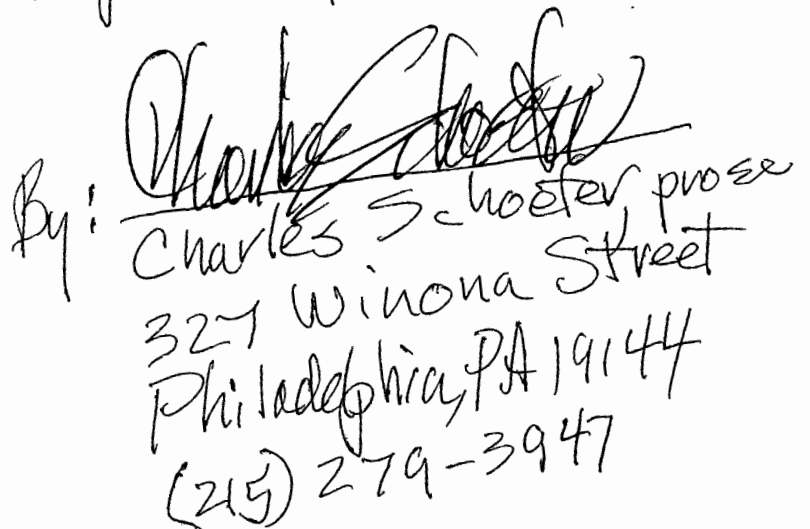 By:
Charles Schoefer, prose
327 Winona Street
Philadelphia, PA 19144
(215) 279-3947